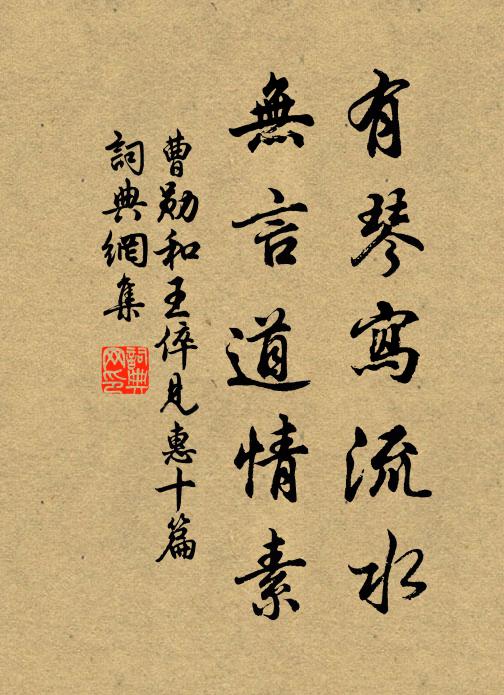 有琴寫流水
無言道情素
曹勛和王倅見惠十篇
詞典網集
詞典网印